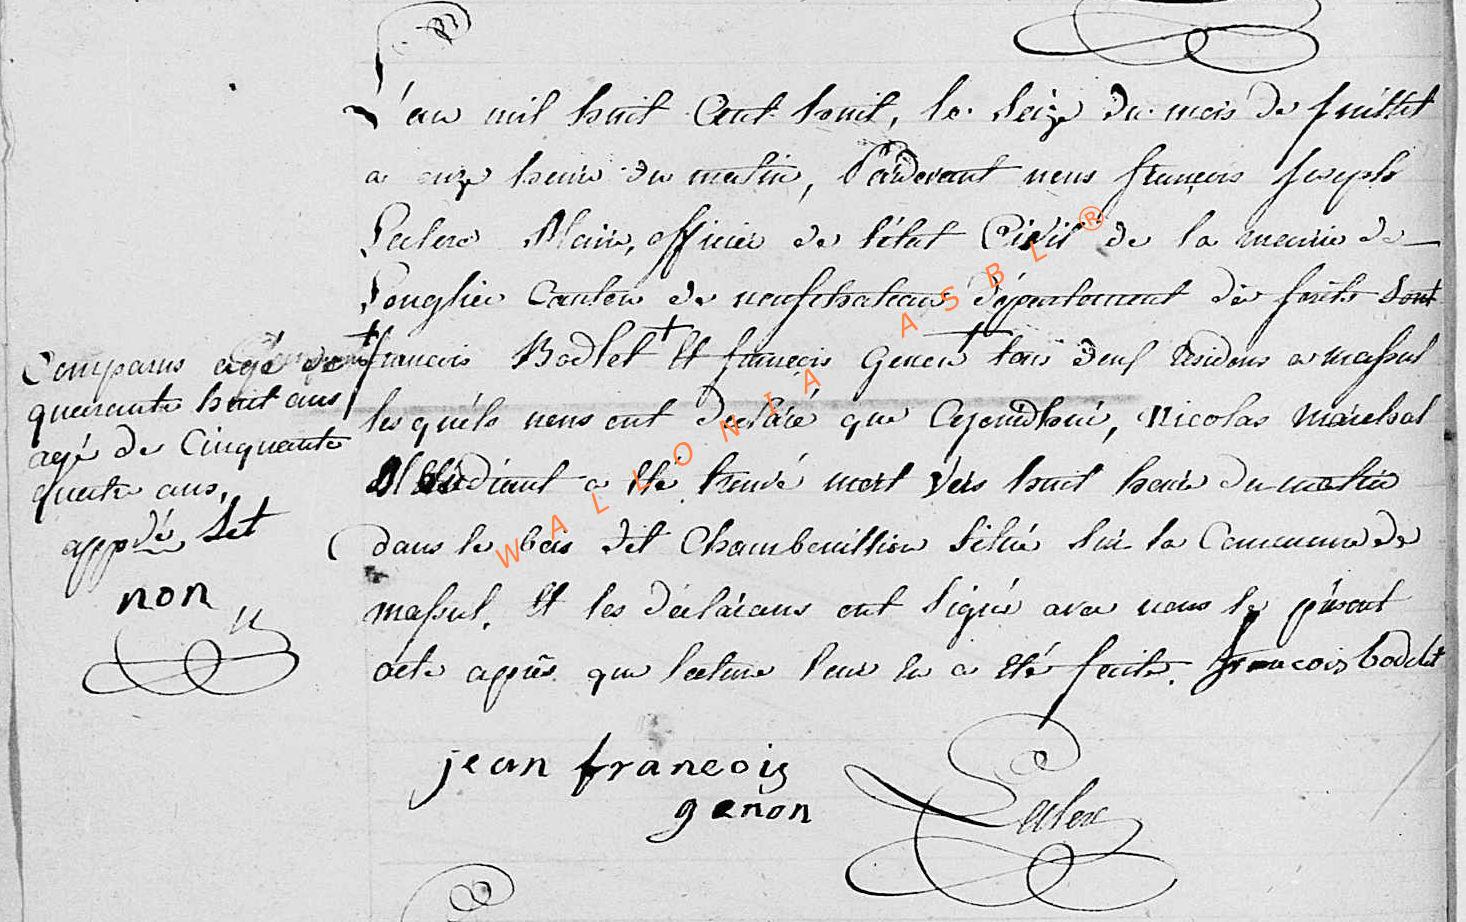 L'an mil huit Cent huit, le Seize du mois de Juillet
a onze heure du matin, Pardevant nous françois Joseph
Leclerc Maire, officier de l'état Civil de la mairie de
Longlier Canton de neufchateau département des forêts Sont
françois Bodlet + Et françois Genon + tous deux residens a massul
les quéls nous ont declaré que Cejourdhui, Nicolas Marechal
Mendiant a été trouvé mort vers huit heure du matin
dans le bois dit Chambouillion Situé Sur la Commune de
massul. Et les déclarans ont Signé avec nous le présent
acte après que lecture leur en a été faite. francois bodelet
jean francois
genon
Leclerc
Comparus agé de
quarante huit ans
agé de Cinquante
quatre ans,
appvé Let
non
WALLONIA ASBL ®